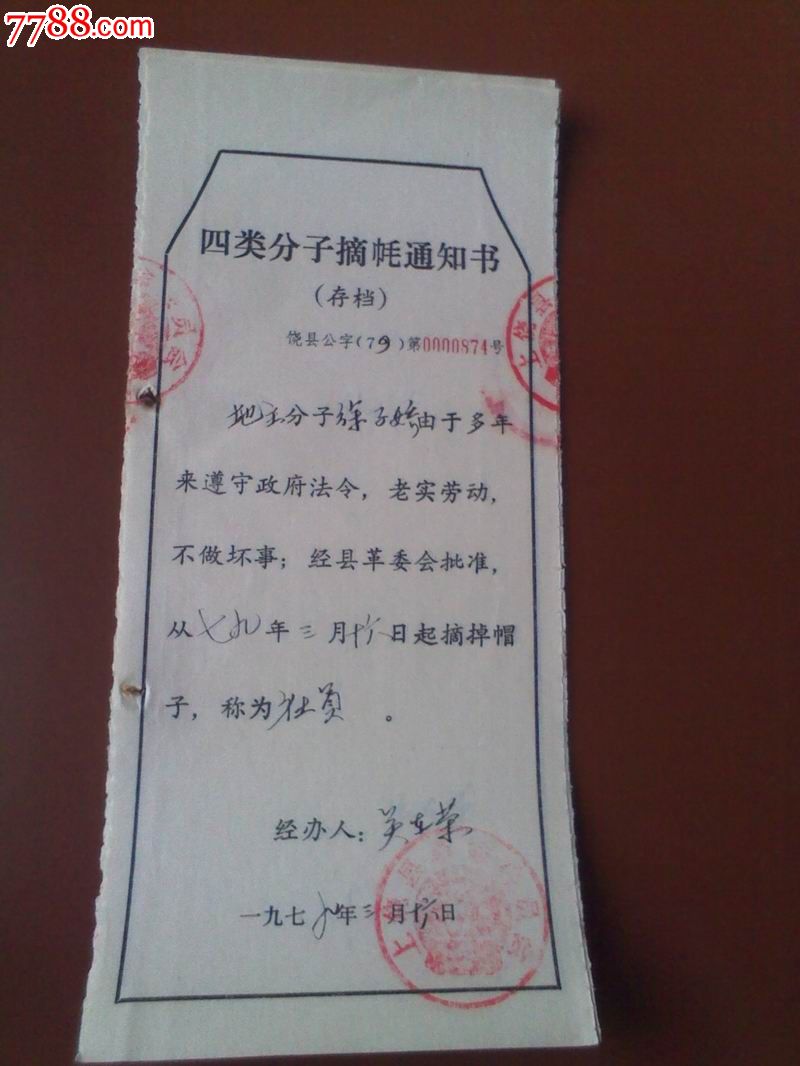 7788.com
四类分子摘毦通知书
(存档)
饶县公字(79)第0000874号
地主分子徐子娇由于多年
来遵守政府法令，老实劳动，
不做坏事；经县革委会批准，
从七九年三月十六日起摘掉帽
子，称为社员。
经办人：
一九七九年三月十六日
上饶县